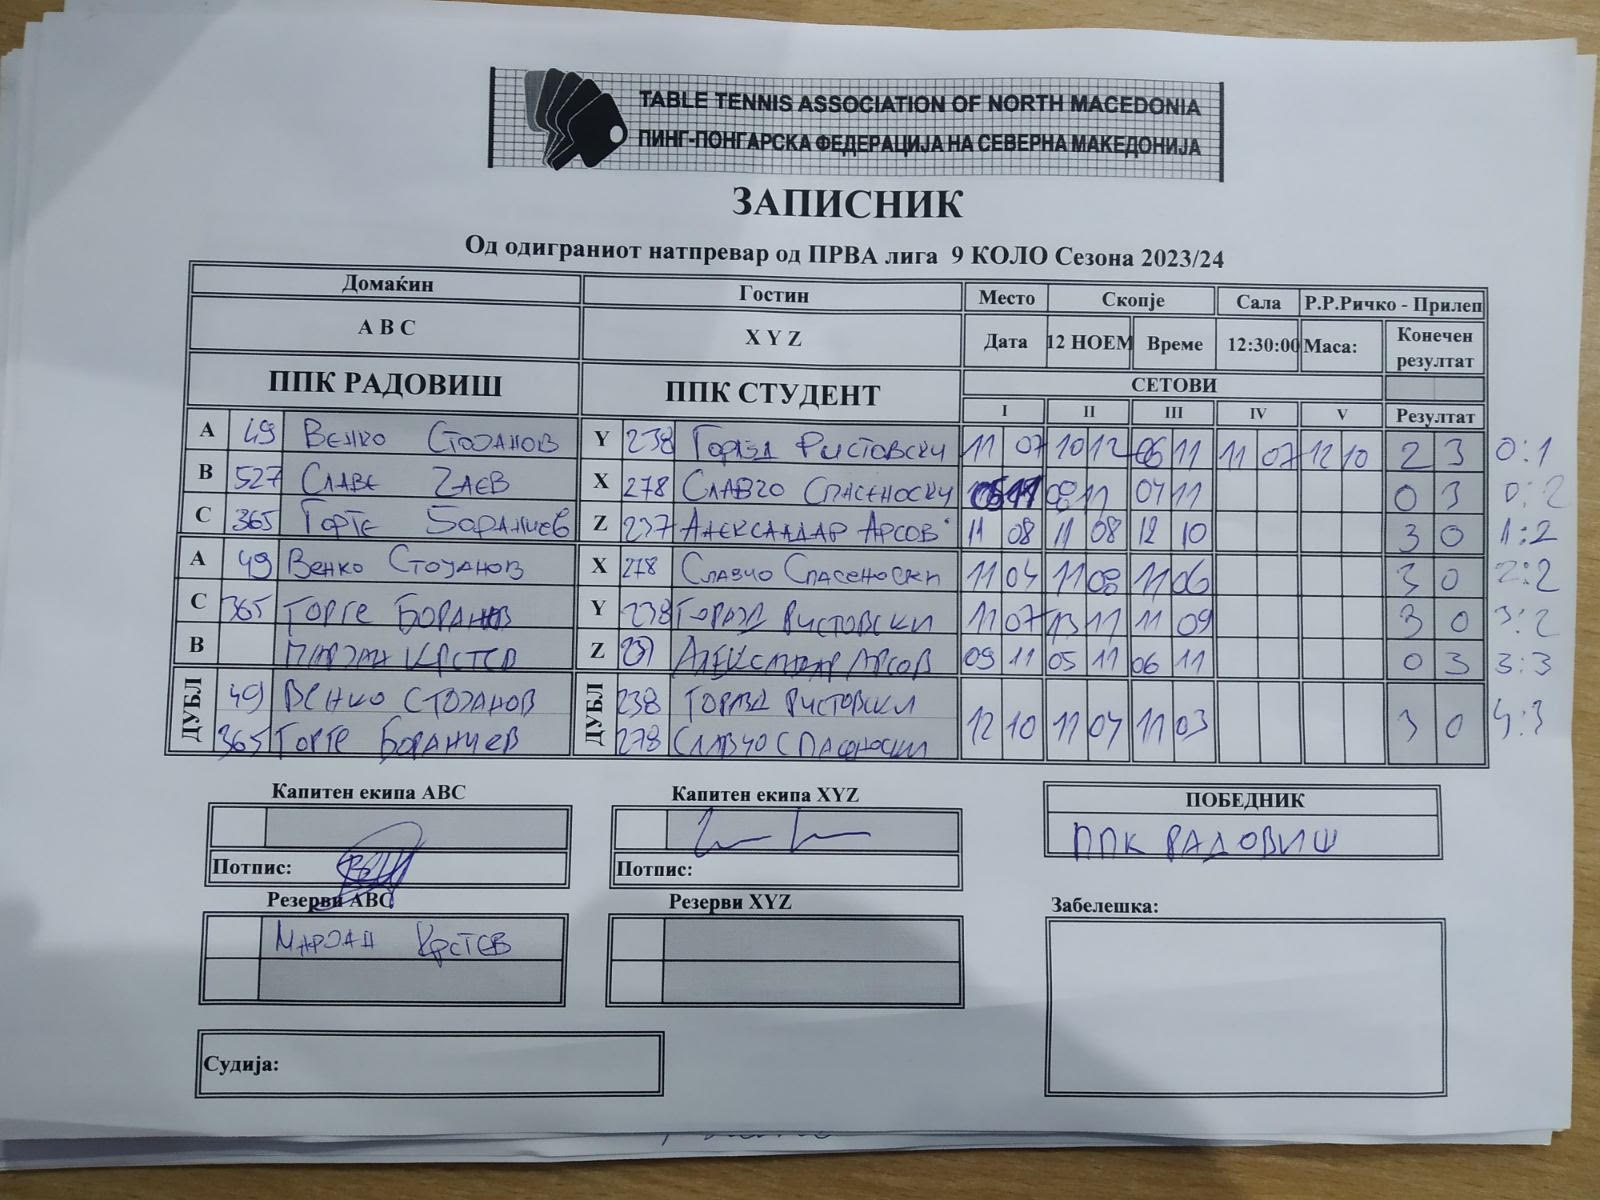 TABLE TENNIS ASSOCIATION OF NORTH MACEDONIA
ПИНГ-ПОНГАРСКА ФЕДЕРАЦИЈА НА СЕВЕРНА МАКЕДОНИЈА
ЗАПИСНИК
Од одиграниот натпревар од ПРВА лига 9 КОЛО Сезона 2023/24
Домаќин Гостин Место Скопје Сала Р.Р.Ричко - Прилеп
A B C X Y Z Дата 12 НОЕМ Време 12:30:00 Маса: Конечен резултат
ППК РАДОВИШ ППК СТУДЕНТ СЕТОВИ
I II III IV V Резултат
A 49 Венко Стојанов Y 238 Горазд Ристовски 11 07 10 12 06 11 11 07 12 10 2 3 0:1
B 527 Славе Заев X 278 Славчо Спасеноски 05 11 08 11 07 11 0 3 0:2
C 365 Ѓорѓе Боранчиев Z 237 Александар Арсов 11 08 11 08 12 10 3 0 1:2
A 49 Венко Стојанов X 278 Славчо Спасеноски 11 04 11 08 11 06 3 0 2:2
C 365 Ѓорѓе Y 238 Горазд Ристовски 11 07 13 11 11 09 3 0 3:2
B Марјан Крстев Z 237 Александар Арсов 09 11 05 11 06 11 0 3 3:3
ДУБЛ 49 Венко Стојанов ДУБЛ 238 Горазд Ристовски 12 10 11 07 11 03 3 0 4:3
365 Ѓорѓе Боранчиев 278 Славчо Спасеноски
Капитен екипа ABC Капитен екипа XYZ ПОБЕДНИК
ППК РАДОВИШ
Потпис: Потпис:
Резерви ABC Резерви XYZ Забелешка:
Марјан Крстев
Судија: